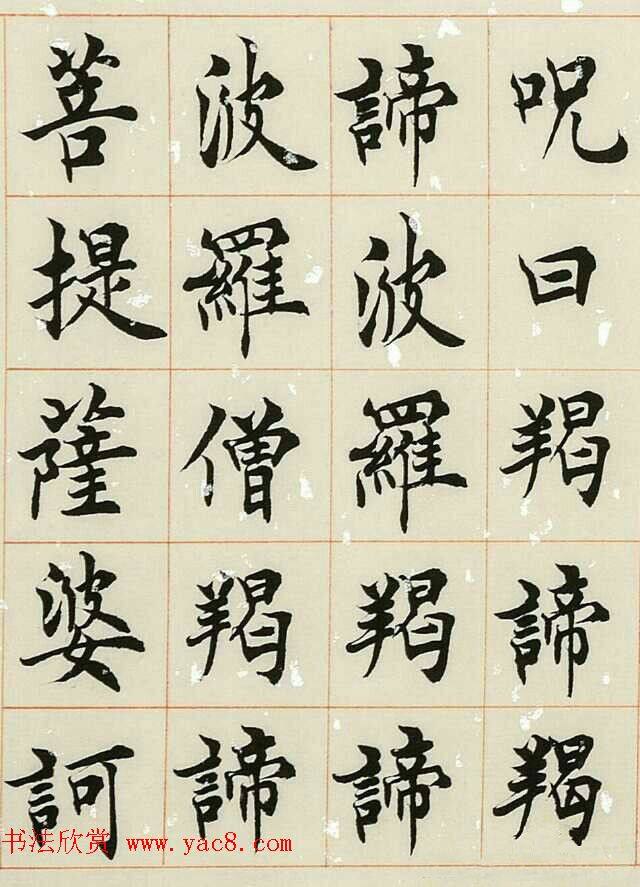 呪曰羯諦羯
諦波羅羯諦
波羅僧羯諦
菩提薩婆訶
书法欣赏 www.yac8.com